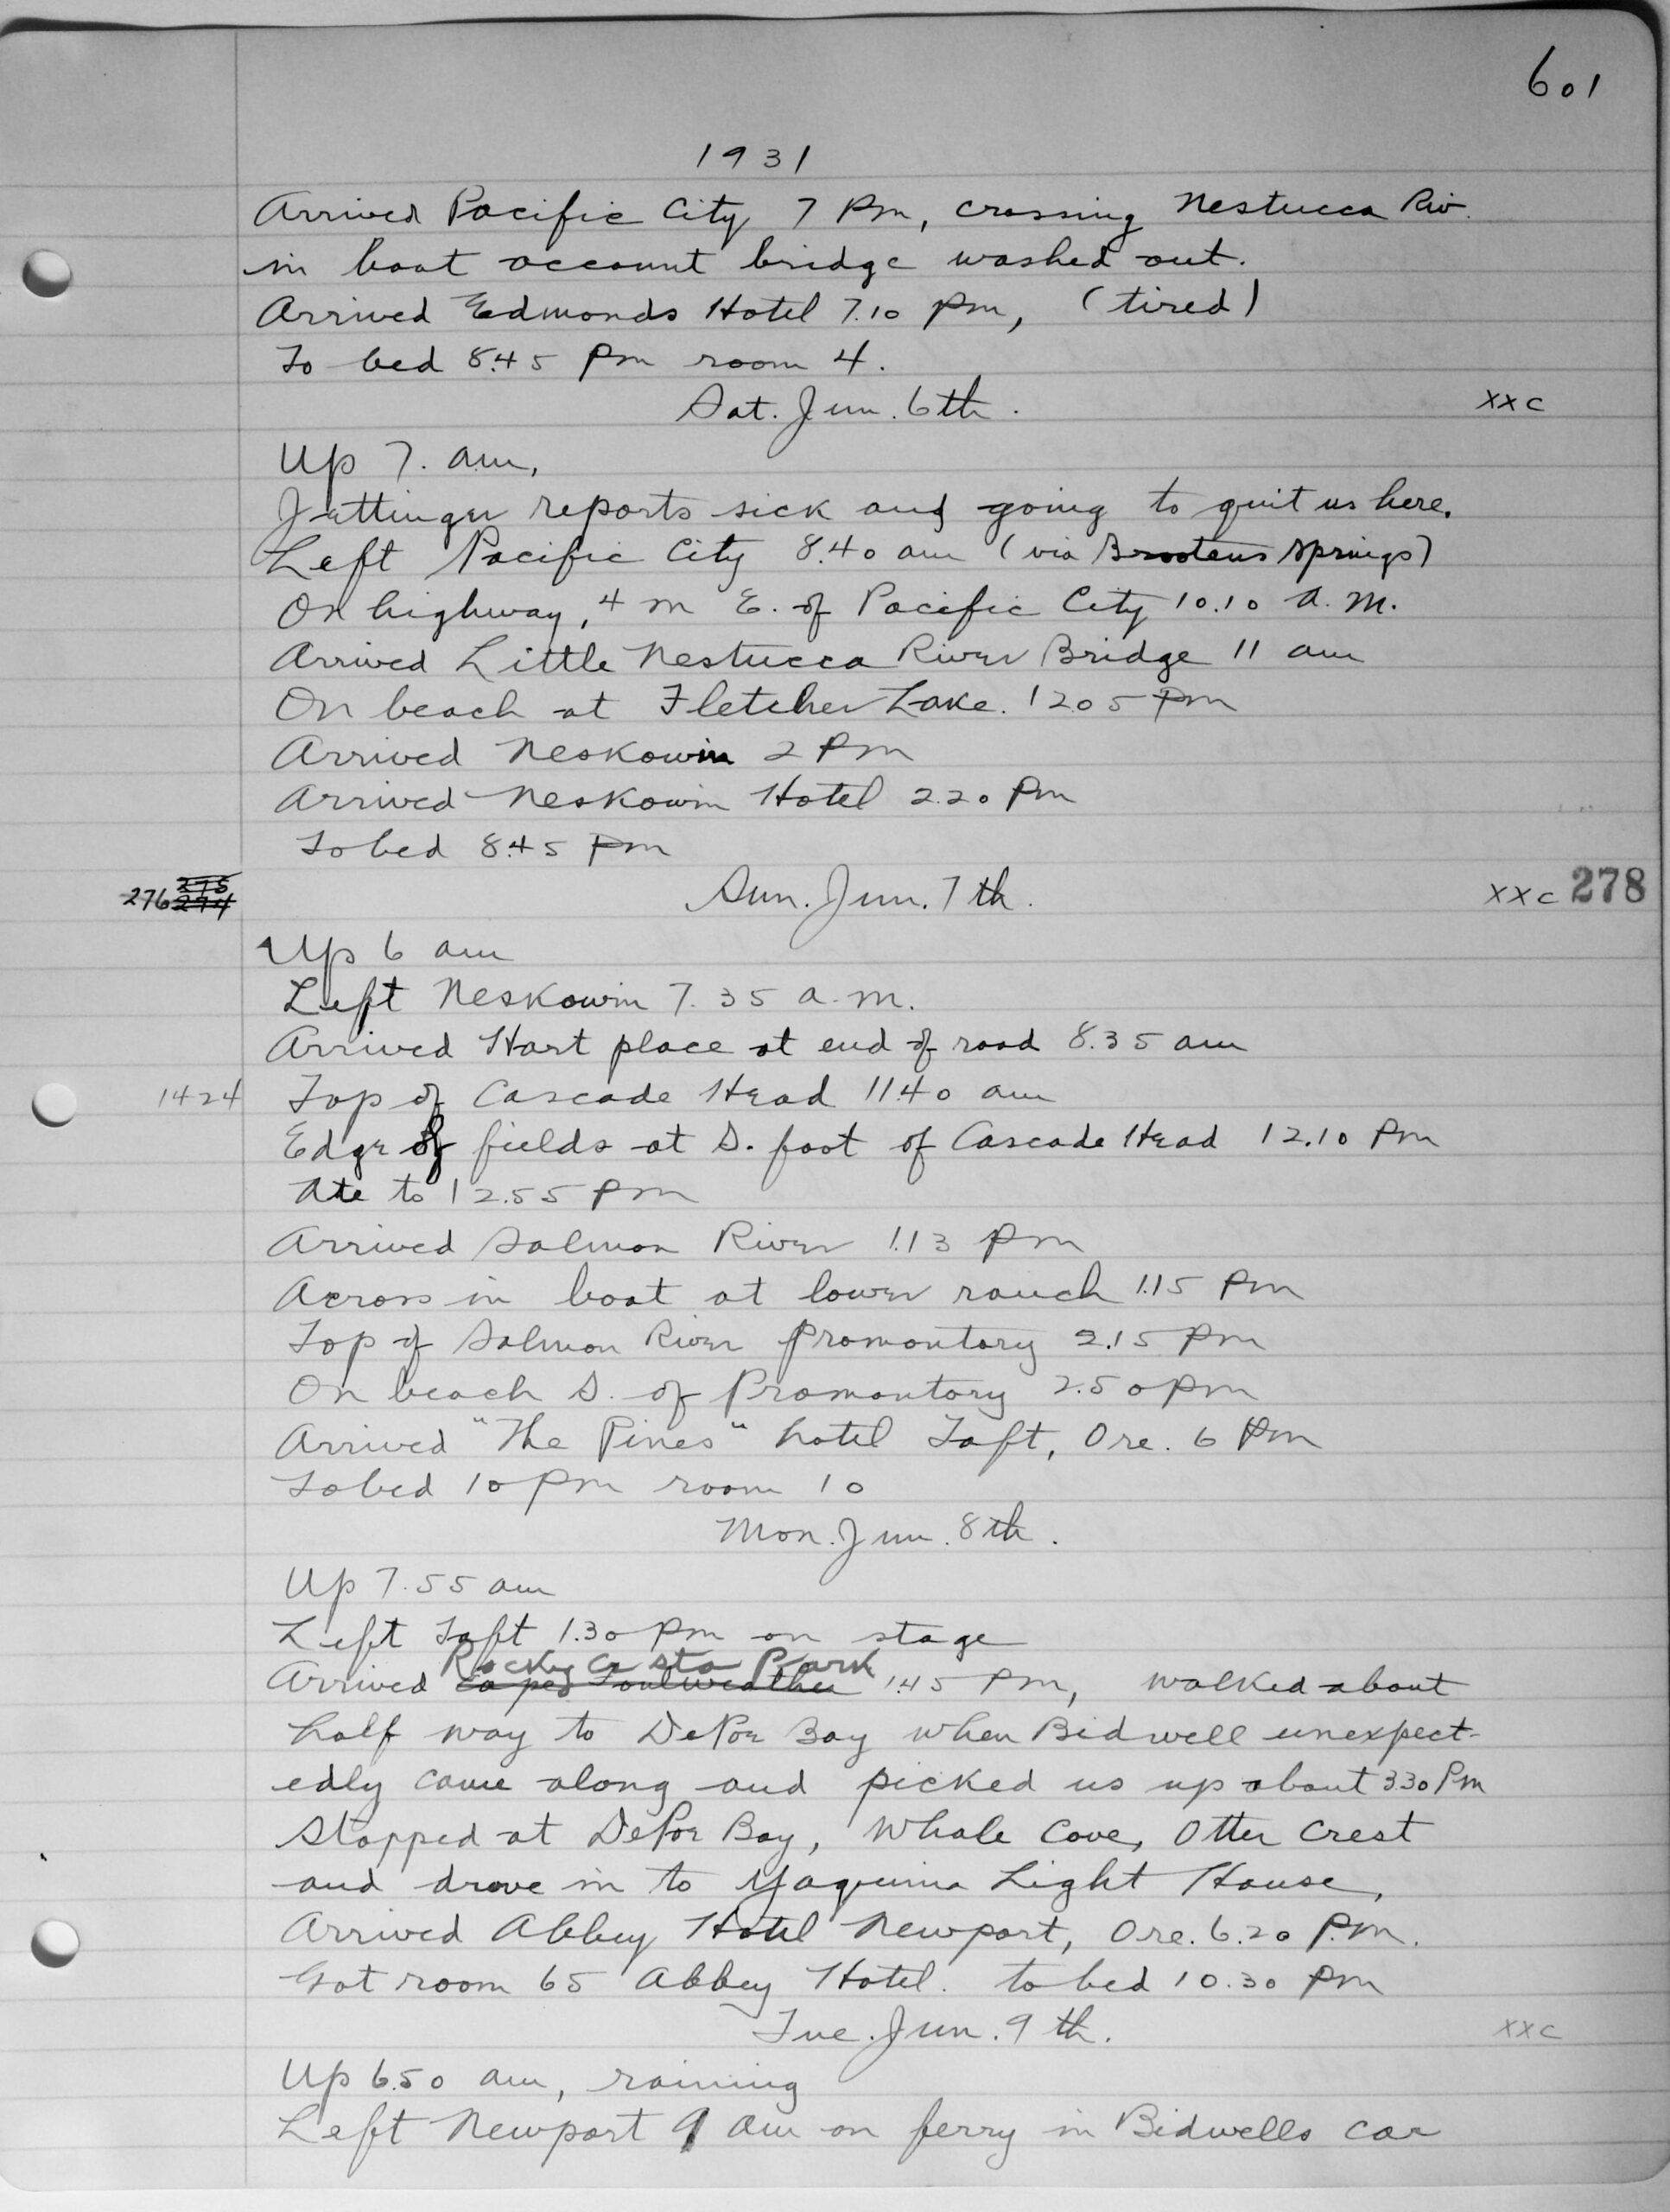 601
1931
Arrived Pacific City 7 Pm, crossing Nestucca Riv.
in boat account bridge washed out.
Arrived Edmonds Hotel 7.10 Pm, (tired)
To bed 8.45 Pm room 4.
Sat. Jun. 6th. xxc
Up 7. am,
Jettinger reports sick and going to quit us here.
Left Pacific City 8.40 am (via Brootens Springs)
On highway, 4 m E. of Pacific City 10.10 A.M.
Arrived Little Nestucca River Bridge 11 am
On beach at Fletcher Lake. 12.05 Pm
Arrived Neskowin 2 Pm
Arrived Neskowin Hotel 2.20 Pm
To bed 8.45 Pm
276 275 274 Sun. Jun. 7th. xxc 278
Up 6 am
Left Neskowin 7.35 a.m.
Arrived Hart place at end of road 8.35 am
1424 Top of Cascade Head 11.40 am
Edge of fields at S. foot of Cascade Head 12.10 Pm
Ate to 12.55 Pm
Arrived Salmon River 1.13 Pm
Across in boat at lower ranch 1.15 Pm
Top of Salmon River Promontory 2.15 Pm
On beach S. of Promontory 2.50 Pm
Arrived "The Pines" hotel Taft, Ore. 6 Pm
To bed 10 Pm room 10
Mon. Jun. 8th.
Up 7.55 am
Left Taft 1.30 Pm on stage
Rocky Cr Sta Park
Arrived Caped Foulweather 1.45 Pm, walked about
half way to DePoe Bay when Bidwell unexpect-
edly came along and picked us up about 3.30 Pm
Stopped at DePoe Bay, Whale Cove, Otter Crest
and drove in to Yaquina Light House,
Arrived Abbey Hotel Newport, Ore. 6.20 P.m.
Got room 65 Abbey Hotel. to bed 10.30 Pm
Tue. Jun. 9th. xxc
Up 6.50 am, raining
Left Newport 9 am on ferry in Bidwells car